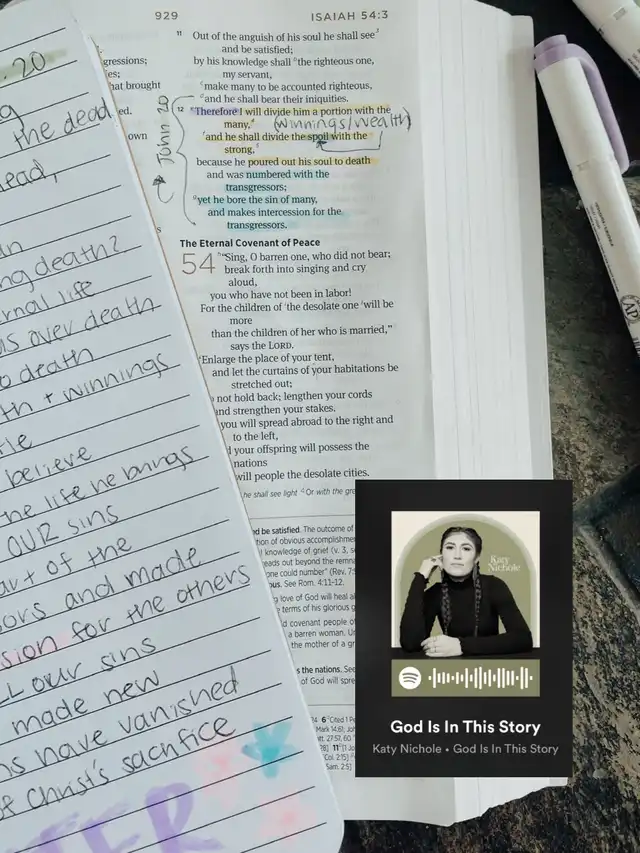 929 ISAIAH 54:3
11 Out of the anguish of his soul he shall see
and be satisfied;
by his knowledge shall the righteous one,
my servant,
make many to be accounted righteous,
and he shall bear their iniquities.
12 Therefore I will divide him a portion with the
many,
(winnings/wealth)
and he shall divide the spoil with the
strong,
because he poured out his soul to death
and was numbered with the
transgressors;
yet he bore the sin of many,
and makes intercession for the
transgressors.
John 20
gressions;
es;
hat brought
ed.
own
s
The Eternal Covenant of Peace
54 "Sing, O barren one, who did not bear;
break forth into singing and cry
aloud,
you who have not been in labor!
For the children of the desolate one will be
more
than the children of her who is married,"
says the LORD.
"Enlarge the place of your tent,
and let the curtains of your habitations be
stretched out;
not hold back; lengthen your cords
and strengthen your stakes.
you will spread abroad to the right and
to the left,
d your offspring will possess the
nations
will people the desolate cities.
he shall see light Or with the gre
nd be satisfied. The outcome of
tion of obvious accomplishmen
knowledge of grief (v. 3, s
eads out beyond the remna
one could number" (Rev. 7:
ous. See Rom. 4:11-12.
love of God will heal al
terms of his glorious g
d covenant people of
a barren woman. Un
the mother of a gr
s the nations. See
of God will spre
. 20
g
the dead
ead,
n
ng death?
rnal life
is over death
o death
th + winnings
le
believe
he life he brings
OUR sins
art of the
ors and made
sion for the others
LL our sins
made new
ns have vanished
of Christ's sacrifice
TER
Katy
Nichole
God Is In This Story
Katy Nichole • God Is In This Story